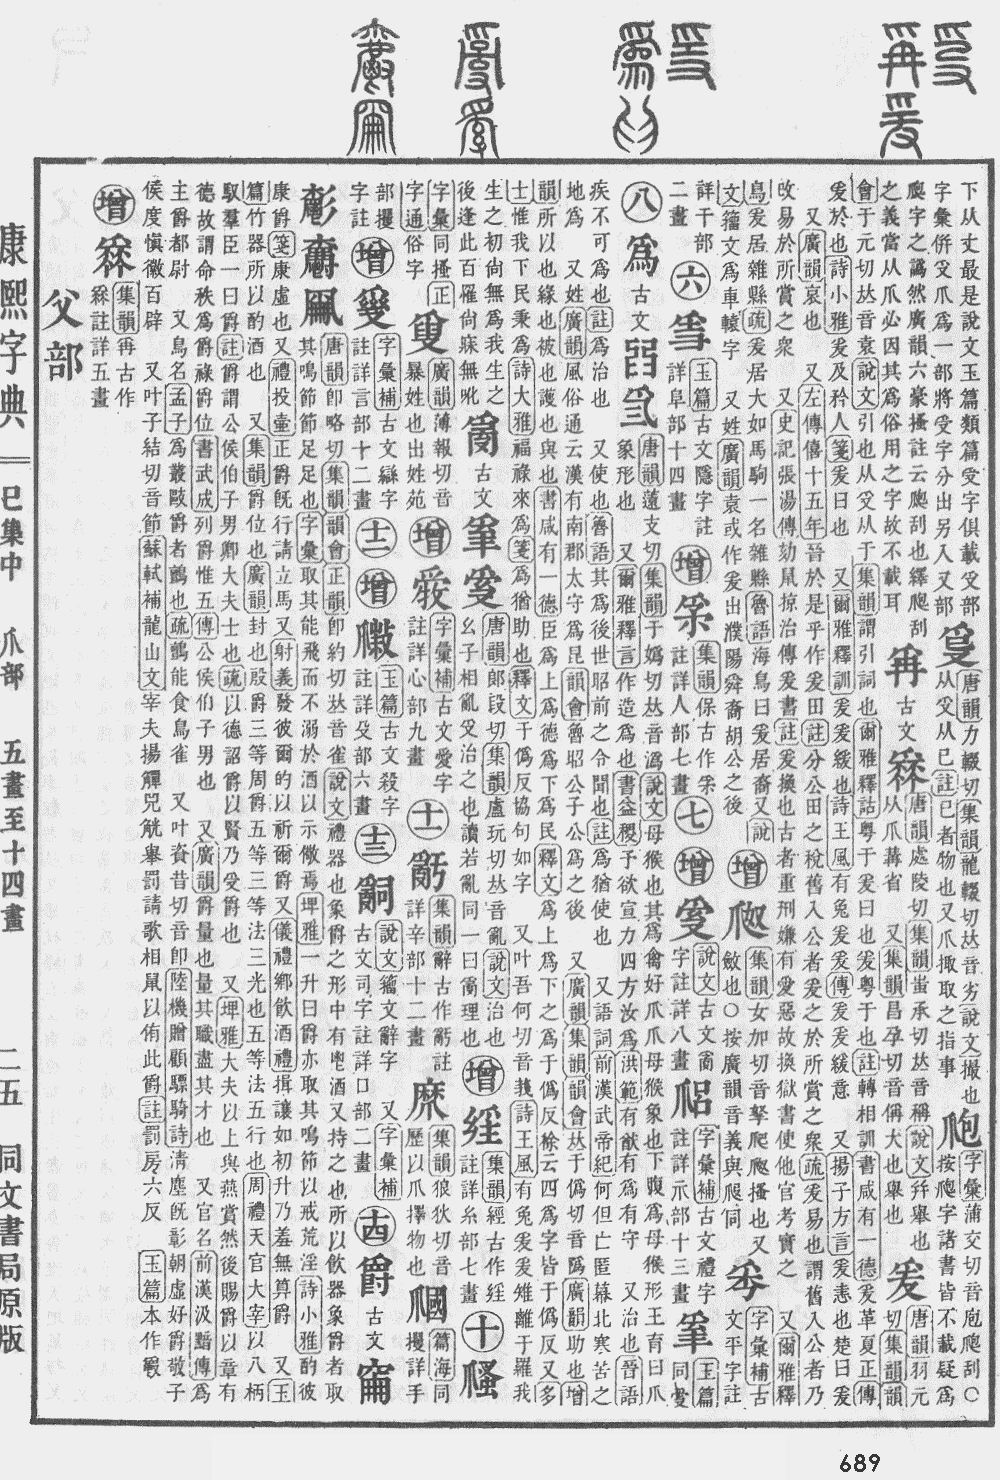 下从丈最是說文玉篇類篇受字俱載𠬪部
字彙倂𠬪爪爲一部將受字分出另入又部
爬字之譌然廣韻六豪搔註云爬刮也繹爬刮
之義當从爪必因其爲俗用之字故不載耳
唐韻力輟切集韻龍輟切𠀤音劣說文撮也
从𠬪从己註己者物也又爪掫取之指事
字彙蒲交切音庖爬刮○
按爬字諸書皆不載疑爲
再
古文
唐韻處陵切集韻蚩承切𠀤音稱說文幷舉也
从爪冓省 又集韻昌孕切音偁大也舉也
爰
唐韻羽元
切集韻韻
會于元切𠀤音袁說文引也从𠬪从于集韻謂引詞也爾雅釋詁粤于爰曰也爰粤于也註轉相訓書咸有一德爰革夏正傳
爰於也詩小雅爰及矜人箋爰曰也 又爾雅釋訓爰爰緩也詩王風有兔爰爰傳爰爰緩意 又揚子方言爰恚也楚曰爰
又廣韻哀也 又左傳僖十五年晉於是乎作爰田註分公田之稅舊入公者爰之於所賞之衆疏爰易也謂舊入公者乃
改易於所賞之衆 又史記張湯傳劾鼠掠治傳爰書註爰換也古者重刑嫌有愛惡故換獄書使他官考實之 又爾雅釋
鳥爰居雜縣疏爰居大如馬駒一名雜縣魯語海鳥曰爰居 又說
文籀文爲車轅字 又姓廣韻袁或作爰出濮陽舜裔胡公之後
增
集韻女加切音拏爬爬搔也又
斂也○按廣韻音義與爬同
字彙補古
文平字註
詳干部
二畫
六
玉篇古文隱字註
詳阜部十四畫
增
集韻保古作
註詳人部七畫
七
增
說文古文𤔔
字註詳八畫
字彙補古文禮字
註詳示部十三畫
玉篇
同愛
八
爲
古文
唐韻薳支切集韻于嬀切𠀤音潙說文母猴也其爲禽好爪爪母猴象也下腹爲母猴形王育曰爪
象形也 又爾雅釋言作造爲也書益稷予欲宣力四方汝爲洪範有猷有爲有守 又治也晉語
疾不可爲也註爲治也 又使也魯語其爲後世昭前之令聞也註爲猶使也 又語詞前漢武帝紀何但亡匿幕北寒苦之
地爲 又姓廣韻風俗通云漢有南郡太守爲昆韻會魯昭公子公爲之後 又廣韻集韻韻會𠀤于僞切音𨼫廣韻助也增
韻所以也緣也被也護也與也書咸有一德臣爲上爲德爲下爲民釋文爲上爲下之爲于僞反徐云四爲字皆于僞反又多
士惟我下民秉爲詩大雅福祿來爲箋爲猶助也釋文于僞反協句如字 又叶吾何切音莪詩王風有兔爰爰雉離于羅我
生之初尚無爲我生之
後逢此百罹尚寐無吪
𤔔
古文
唐韻郎段切集韻盧玩切𠀤音亂說文治也
幺子相亂𠬪治之也讀若亂同一曰𤔔理也
增
集韻經古作
註詳糸部七畫
十
字彙同搔正
字通俗字
廣韻薄報切音
暴姓也出姓苑
增
字彙補古文愛字
註詳心部九畫
十一
集韻辭古作𤔲註
詳辛部十二畫
集韻狼狄切音
歷以爪擇物也
篇海同
攫詳手
部攫
字註
增
字彙補古文䜌字
註詳言部十二畫
十二
增
玉篇古文殺字
註詳殳部六畫
十三
說文籀文辭字 又字彙補
古文司字註詳口部二畫
十四
爵
古文
唐韻卽略切集韻韻會正韻卽約切𠀤音雀說文禮器也象爵之形中有鬯酒又持之也所以飮器象爵者取
其鳴節節足足也字彙取其能飛而不溺於酒以示儆焉埤雅一升曰爵亦取其鳴節以戒荒淫詩小雅酌彼
康爵箋康虛也又禮投壷正爵旣行請立馬又射義發彼爾的以祈爾爵又儀禮鄕飮酒禮揖讓如初升乃羞無算爵 又玉
篇竹器所以酌酒也 又集韻爵位也廣韻封也殷爵三等周爵五等三等法三光也五等法五行也周禮天官大宰以八柄
馭羣臣一曰爵註爵謂公侯伯子男卿大夫士也疏以德詔爵以賢乃受爵也 又埤雅大夫以上與燕賞然後賜爵以章有
德故謂命秩爲爵祿爵位書武成列爵惟五傳公侯伯子男也 又廣韻爵量也量其職盡其才也 又官名前漢汲黯傳爲
主爵都尉 又鳥名孟子爲叢敺爵者鸇也疏鸇能食鳥雀 又叶資昔切音卽陸機贈顧驃騎詩淸塵旣彰朝虛好爵敬子
侯度愼徽百辟 又叶子結切音節蘇軾補龍山文宰夫揚觶兕觥舉罰請歌相鼠以侑此爵註罰房六反 玉篇本作
增
集韻再古作
註詳五畫
父部
康熙字典
巳集中 爪部 五畫至十四畫
二五 同文書局原版
689